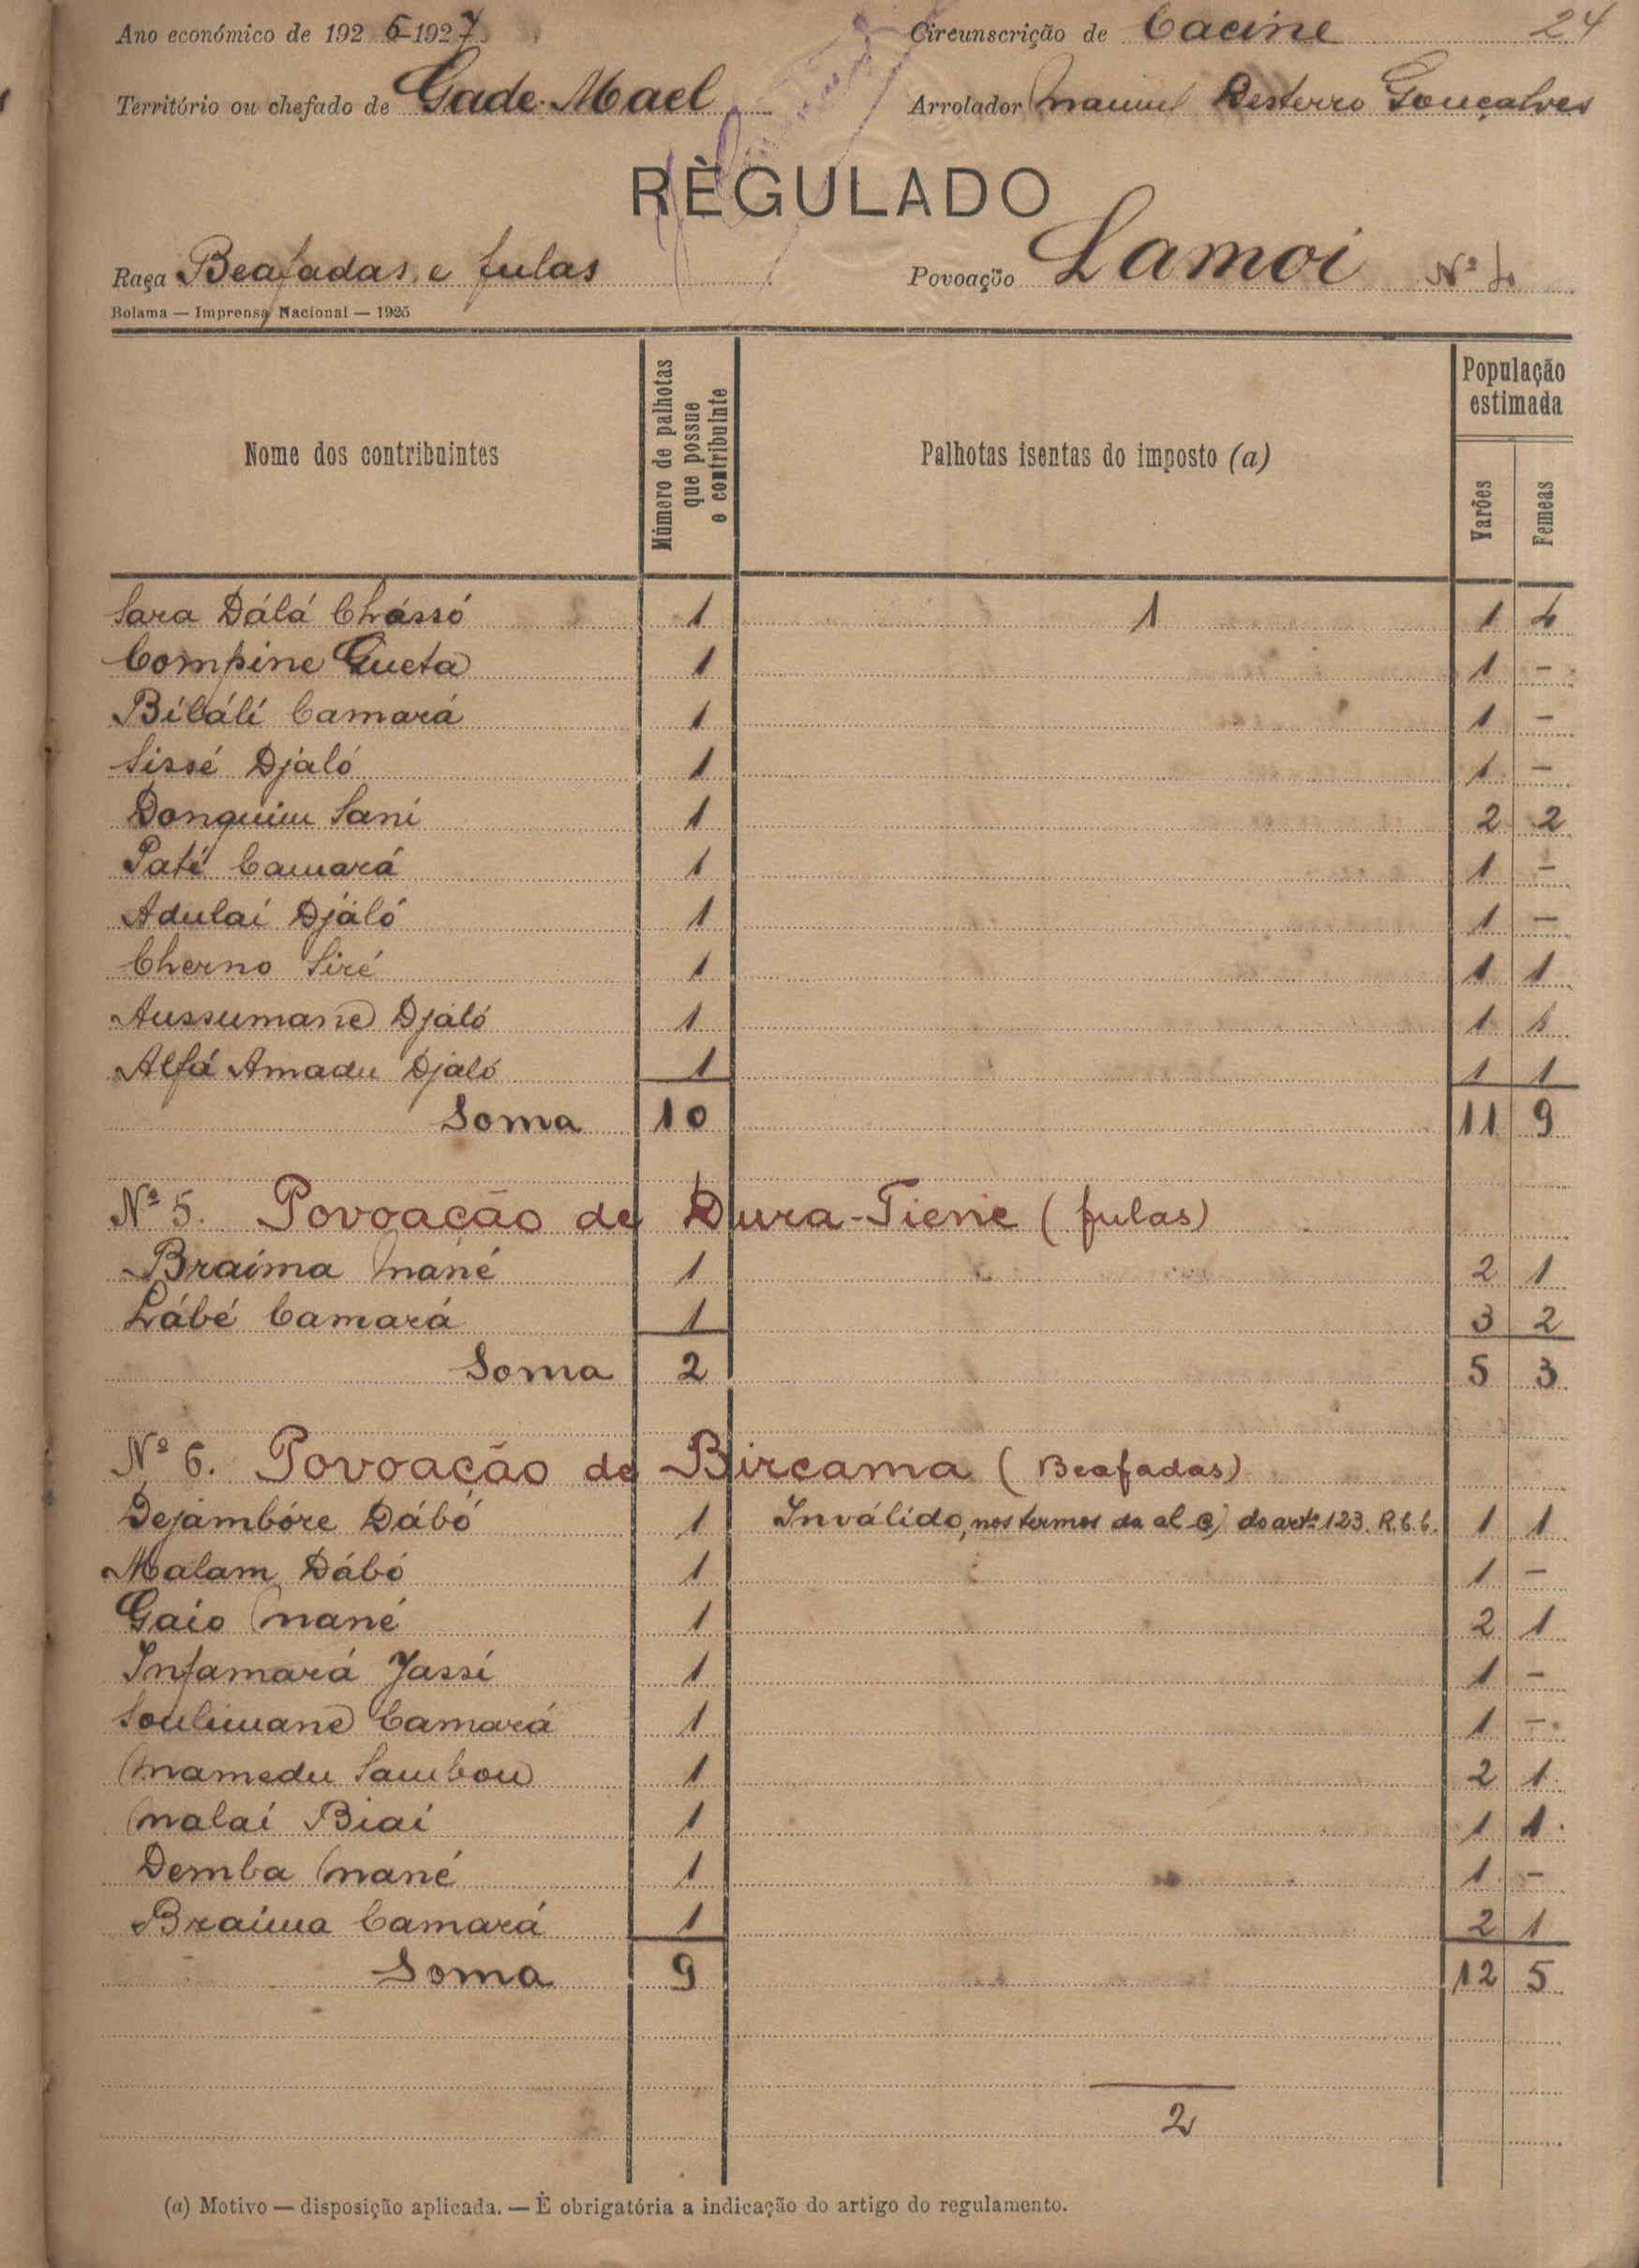 Ano económico de 1926-1927. Circunscrição de Cacine 24
Território ou chefado de Gade-Mael Arrolador Manuel Desterro Gonçalves
RÈGULADO
Raça Beafadas e fulas Povoação Lamoi Nº 4
Bolama — Imprensa Nacional — 1925
Nome dos contribuintes
Número de palhotas que possue o contribuinte
Palhotas isentas do imposto (a)
População estimada
Varões Femeas
Sara Dálá Chássó 1 1 1 4
Compine Gueta 1 1 -
Bilálí Camará 1 1 -
Sissé Djaló 1 1 -
Donquim Sani 1 2 2
Paté Camará 1 1 -
Adulai Djáló 1 1 -
Cherno Siré 1 1 1
Aussumane Djaló 1 1 1
Alfá Amadu Djaló 1 1 1
Soma 10 11 9
Nº 5. Povoação de Dura-Tiene (fulas)
Braima Mané 1 2 1
Lábé Camará 1 3 2
Soma 2 5 3
Nº 6. Povoação de Bircama (Beafadas)
Dejambóre Dábó 1 Inválido, nos termos da al c) do artº 123. R.C.C. 1 1
Malam Dábó 1 1 -
Gaio Mané 1 2 1
Infamará Jassi 1 1 -
Soulimane Camará 1 1 -
Mamedu Sambou 1 2 1
Malaí Biai 1 1 1
Demba Mané 1 1 -
Braima Camará 1 2 1
Soma 9 12 5
2
(a) Motivo — disposição aplicada. — È obrigatória a indicação do artigo do regulamento.